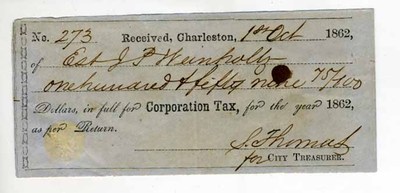 No. 273 Received, Charleston, 1st Oct 1862,
of Est J. P. Weinholtz
one hundred & fifty nine 75/100
Dollars, in full for Corporation Tax, for the year 1862,
as per Return.
S. Thomas
for CITY TREASURER.